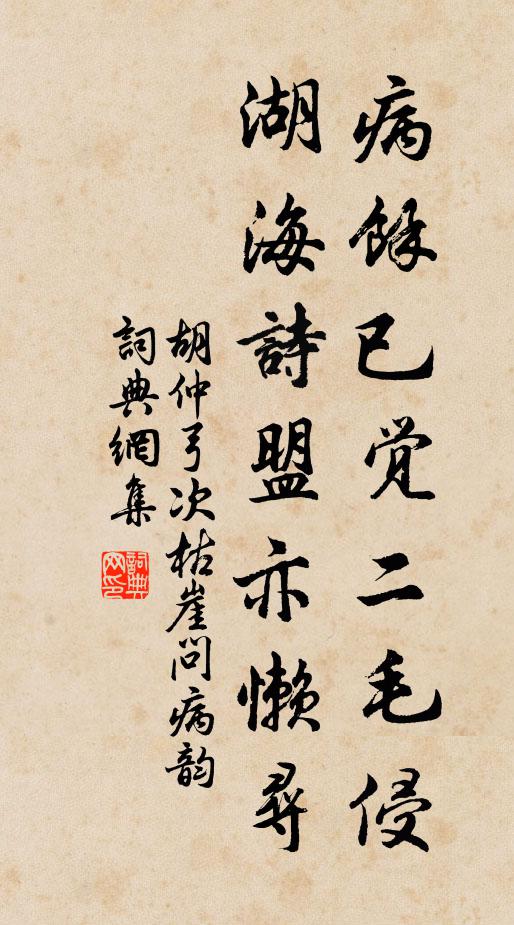 病餘已觉二毛侵
湖海詩盟亦懒尋
胡仲弓次枯崖問病韵
詞典網集
詞典
网印